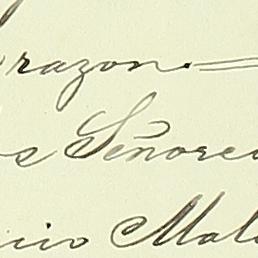 razon.=
s Señore
cio Mal